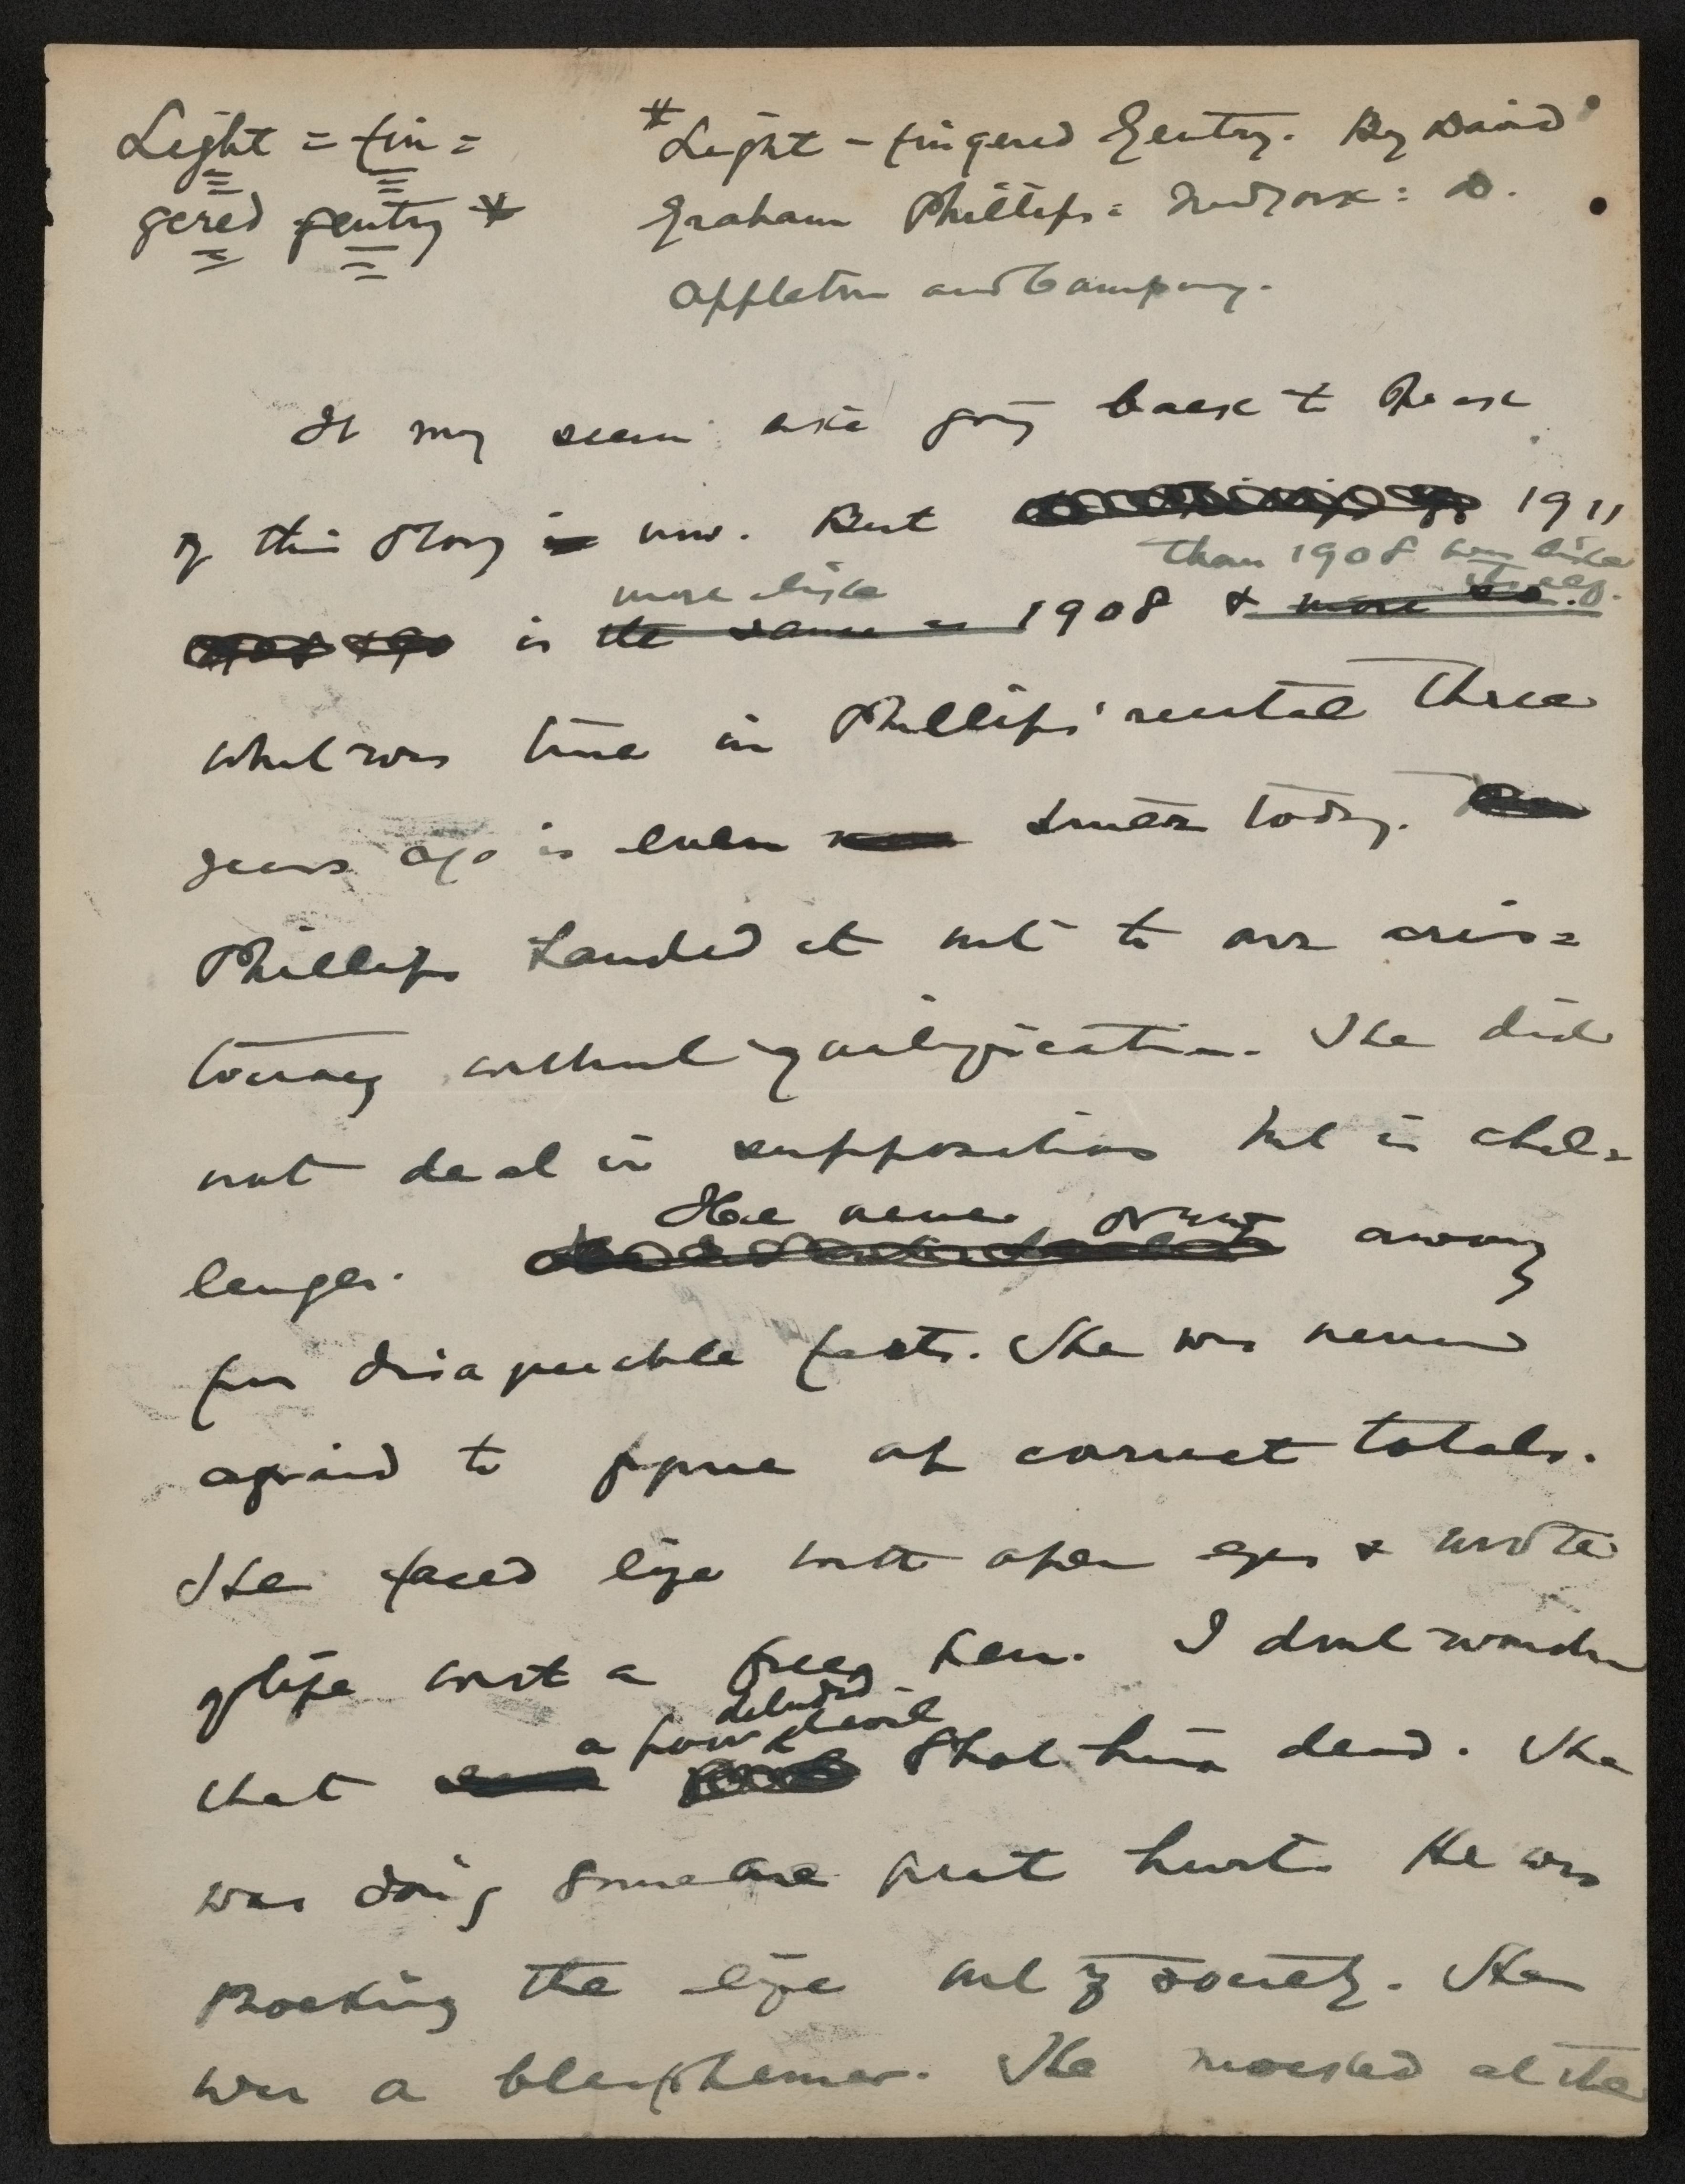 Light = fin =
gered gentry *
*Light - fingered Gentry. By David
Graham Phillips: New York: D.
Appleton and Company.
It may seem like going back to speak
of this story now. But 1911
than 1908 was like
itself.
more like
is the same as 1908 & more so.
what was true in Phillips' recital three
years ago is even truer today.
Phillips handed it out to our aris=
tocracy without qualification. He did
not deal in suppositions but in chal=
He never
lenges. away
from disagreeable facts. He was never
afraid to figure at correct totals.
He faced life with open eyes & wrote
of life with a free pen. I dont wonder
deluded
a poor devil
that shot him dead. He
was doing someone great hurt. He was
shocking the life out of society. He
was a blasphemer. He mocked at the